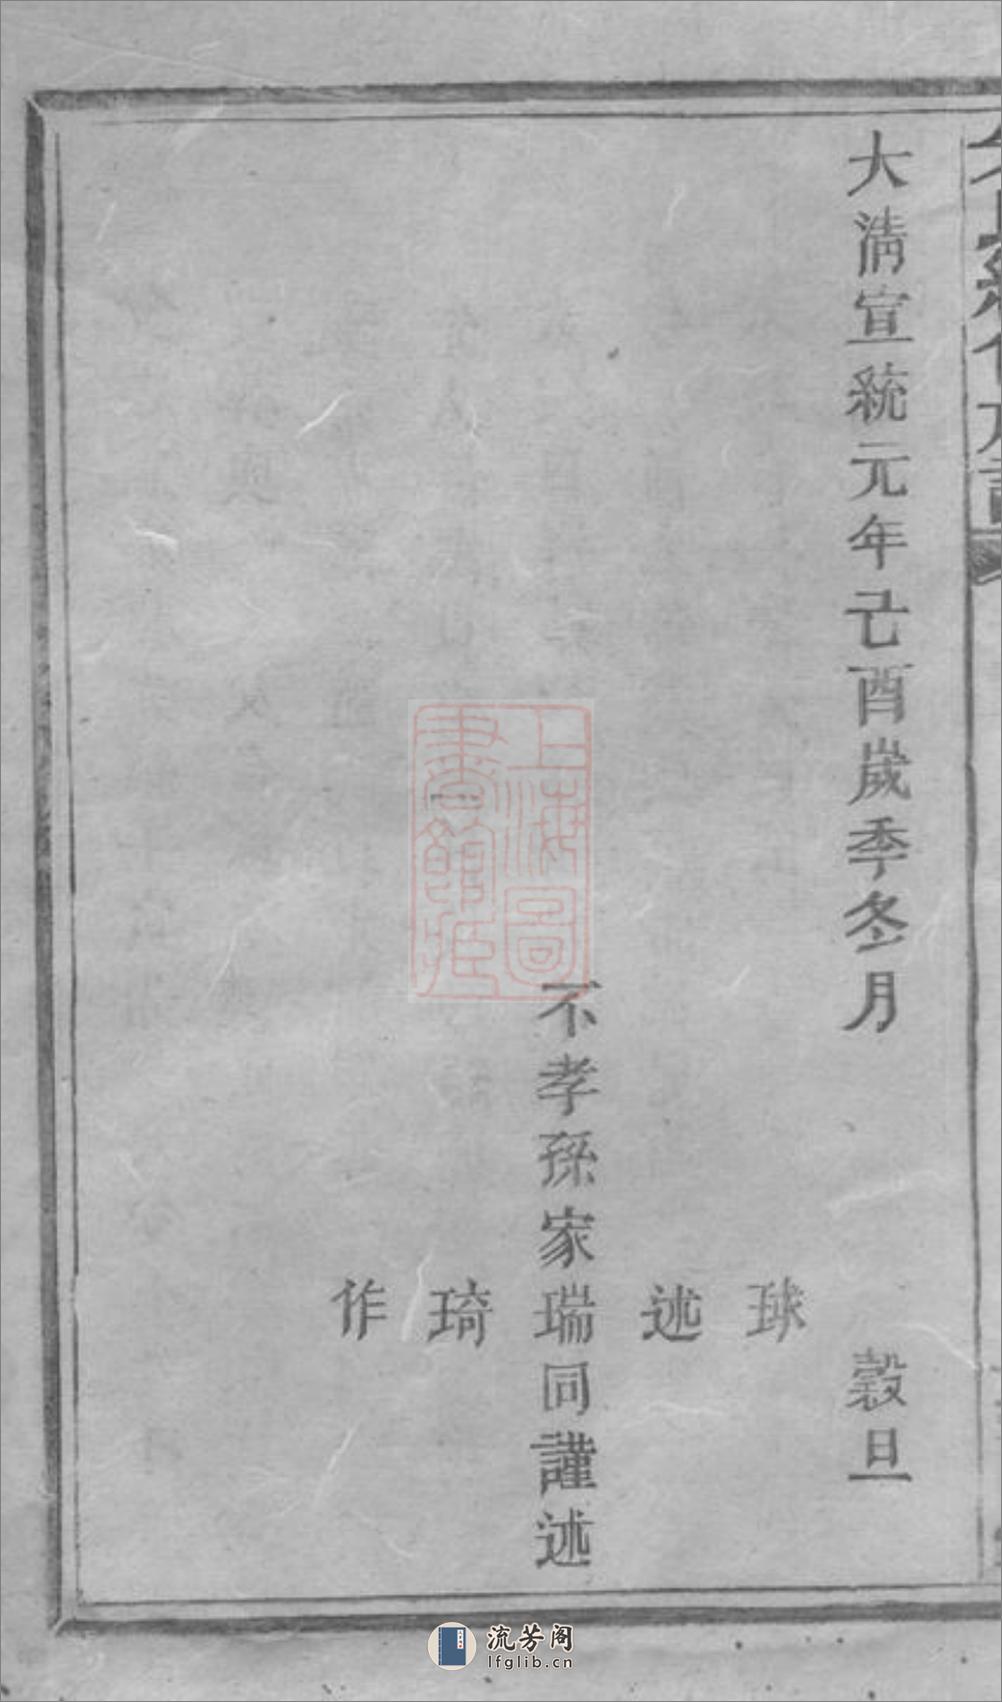 大清宣統元年己酉歲季冬月 穀旦
球
述
不孝孫家瑞同謹述
琦
作
上海圖
書館藏
流芳阁
lfglib.cn